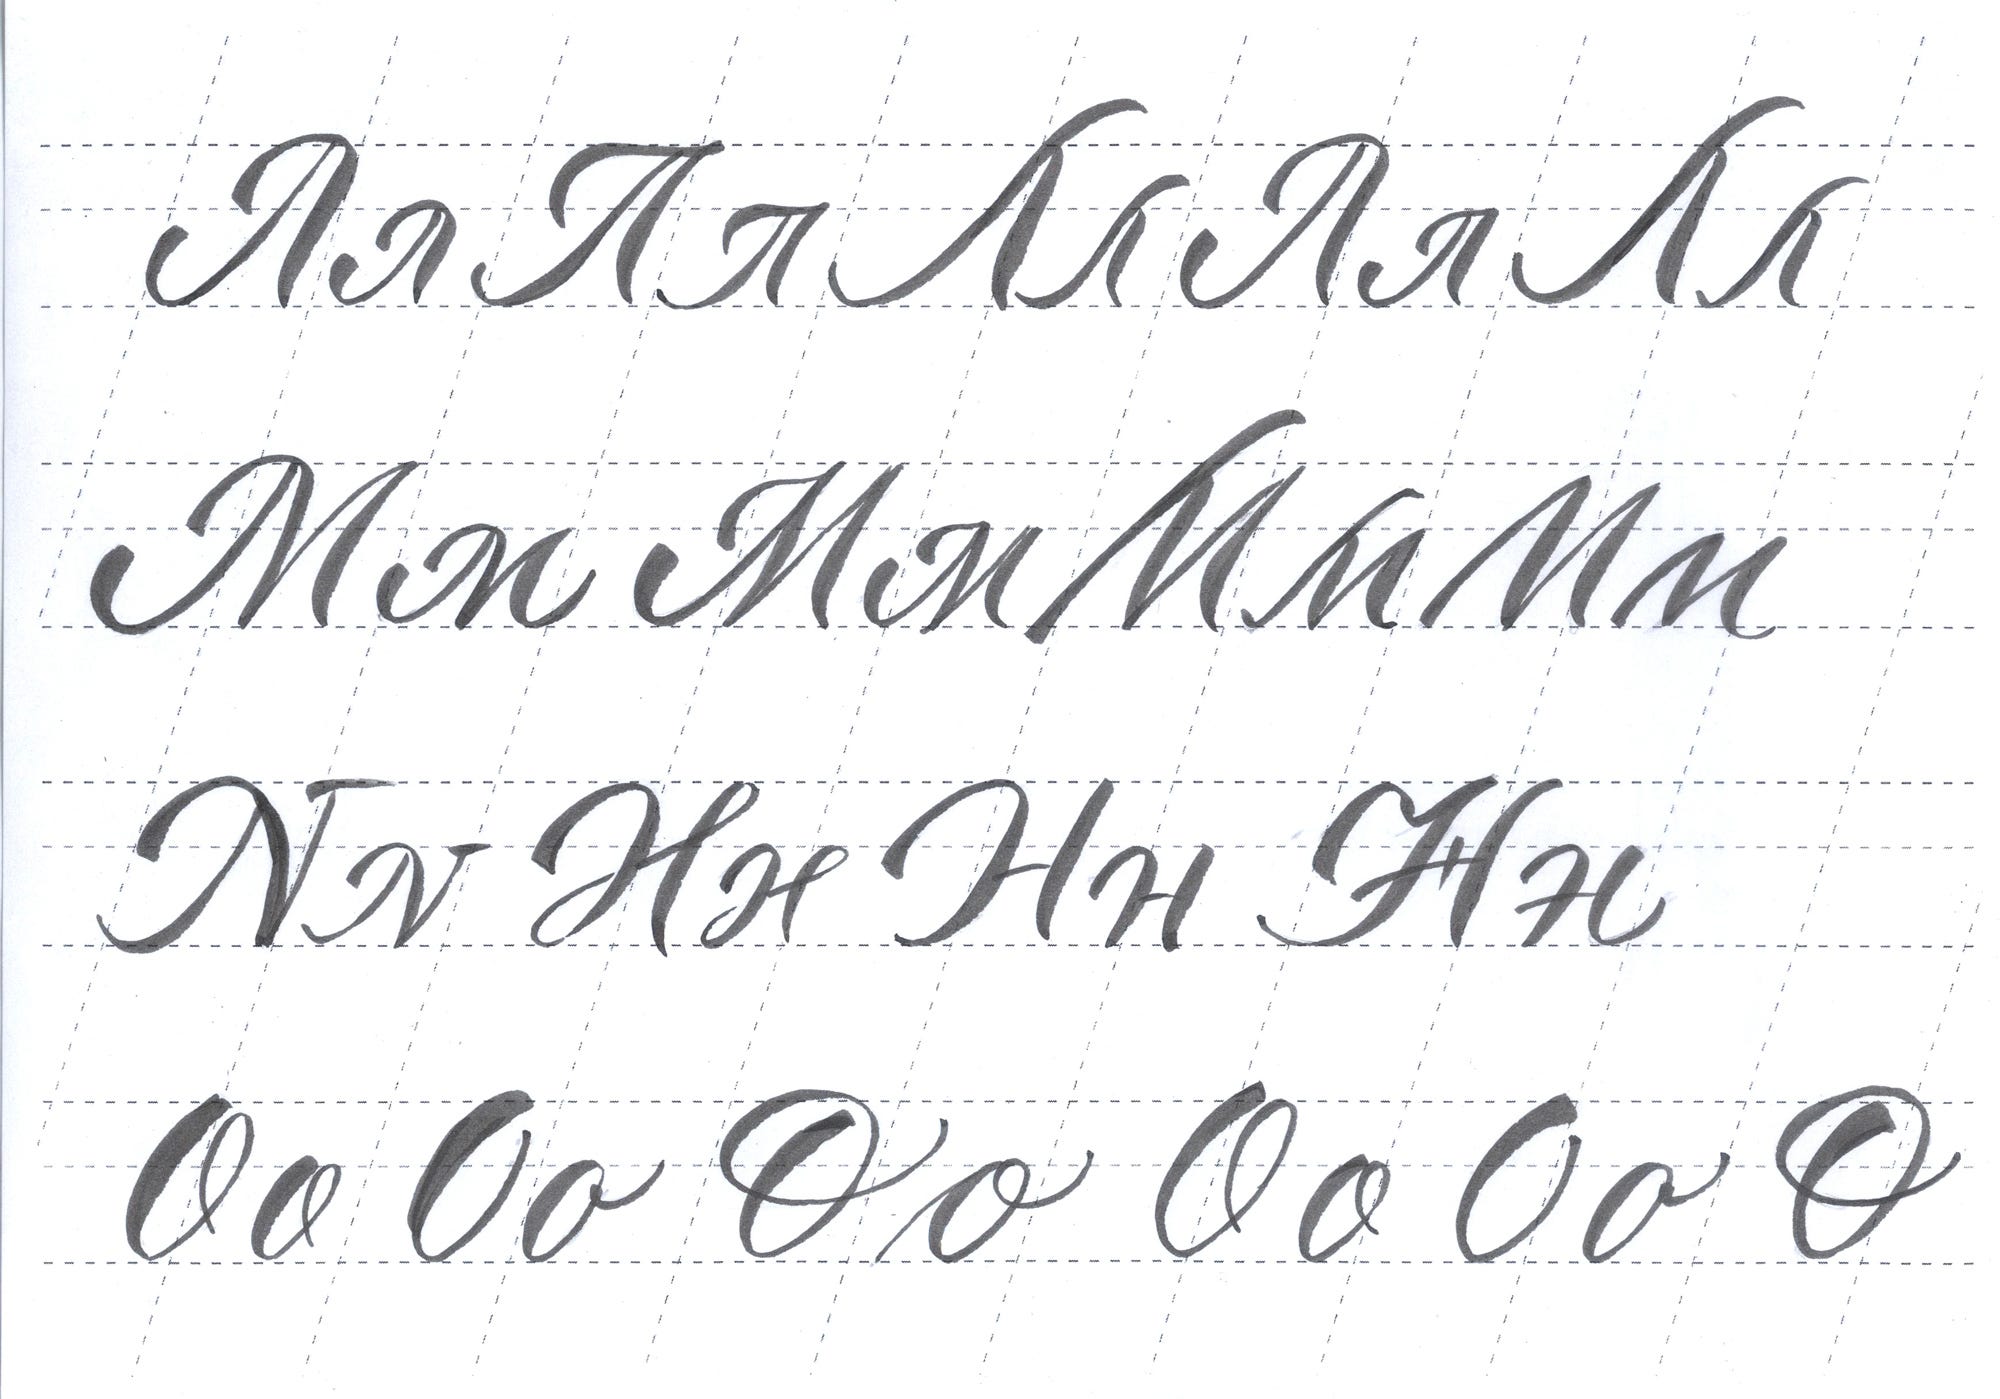 Лл Лл Лл Лл Лл
Мм Мм Мм Мм
Nн Нн Нн Нн
Оо Оо Оо Оо Оо О